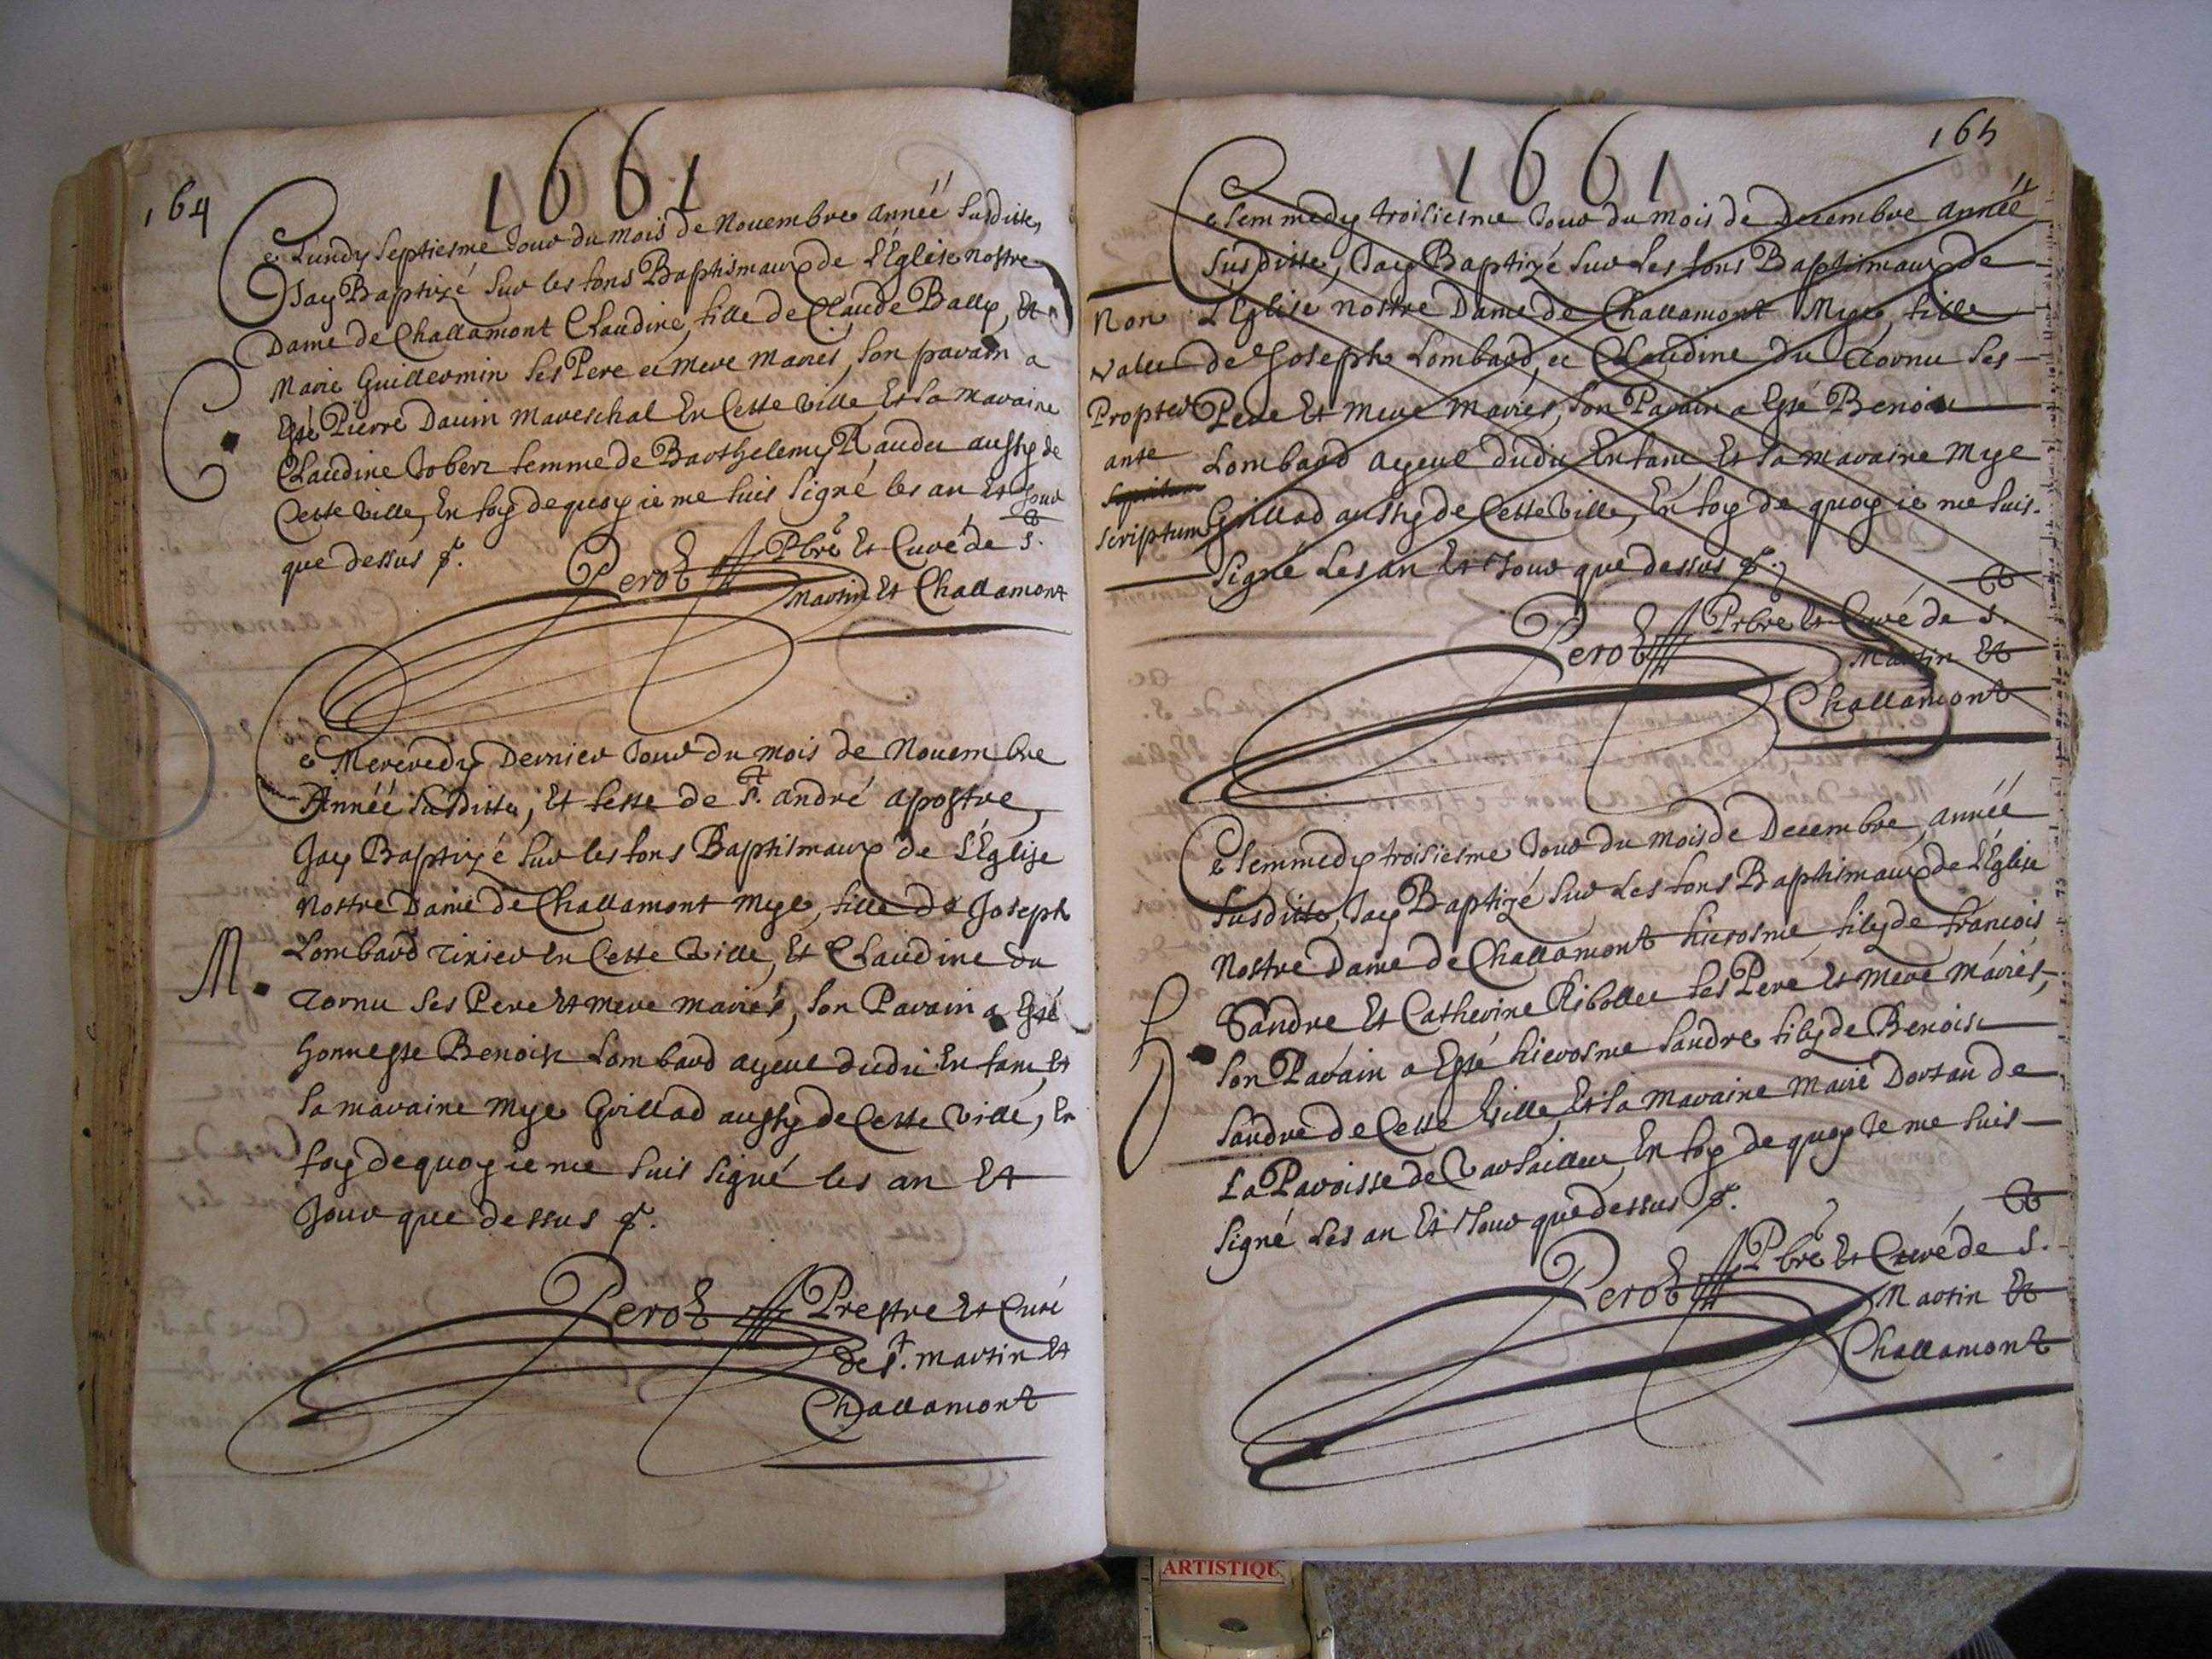 164
1661
Ce Lundy septiesme Jour du mois de Nouembre année susditte,
J'ay Baptizé sur les fons Baptismaux de L'Église nostre
Dame de Challamont Claudine, fille de Claude Bally, Et
Marie Guillermin ses Pere et mere mariés, son parain a
Esté Pierre Dauin mareschal En Cette ville, Et sa maraine
C
Claudine Joberz femme de Barthelemy Raudet aussy de
Cette ville, En foy de quoy ie me suis signé les an Et Jour
que dessus
Perot Pbre Et Curé de S.
Martin Et Challamont
Ce Mercredy Dernier Jour du mois de Nouembre
Année susditte, Et feste de St. André apostre,
J'ay Baptizé sur les fons Baptismaux de L'Église
Nostre Dame de Challamont Mye, fille de Joseph
M
Lombard Tixier En Cette Ville, Et Claudine du
Cornu ses Pere Et mere mariés, son Parain a Esté
honneste Benoist Lombard ayeul dudit Enfant, Et
sa maraine Mye Grillad aussy de Cette Ville, En
foy de quoy ie me suis signé les an Et
Jour que dessus
Perot Prestre Et Curé
de St. Martin Et
Challamont
165
1661
Ce Semmedy troisiesme Jour du mois de Decembre année
susditte, J'ay Baptizé sur Les fons Baptismaux de
L'Église nostre Dame de Challamont Mye, fille
de Joseph Lombard, et Claudine du Cornu ses
Pere Et Mere mariés, son Parain a Esté Benoist
Lombard ayeul dudit Enfant Et sa maraine Mye
Grillad aussy de Cette Ville, En foy de quoy ie me suis
signé Les an Et Jour que dessus
Non
valet
Propter
ante
scriptum
Perot Prbre Et Curé de S.
Martin Et
Challamont
Ce Semmedy troisiesme Jour du mois de Decembre, année
susditte, J'ay Baptizé sur Les fons Baptismaux de L'Église
Nostre Dame de Challamont hierosme filz de francois
Sandre Et Catherine Ribollet ses Pere Et mere mariés,
son Parain a Esté hierosme Sandre filz de Benoist
Sandre de Cette Ville, Et sa maraine Marie Dortan de
La Paroisse de Varsailleu, En foy de quoy Je me suis
signé Les an Et Jour que dessus
Perot Pbre Et Curé de S.
Martin Et
Challamont
ARTISTIQU